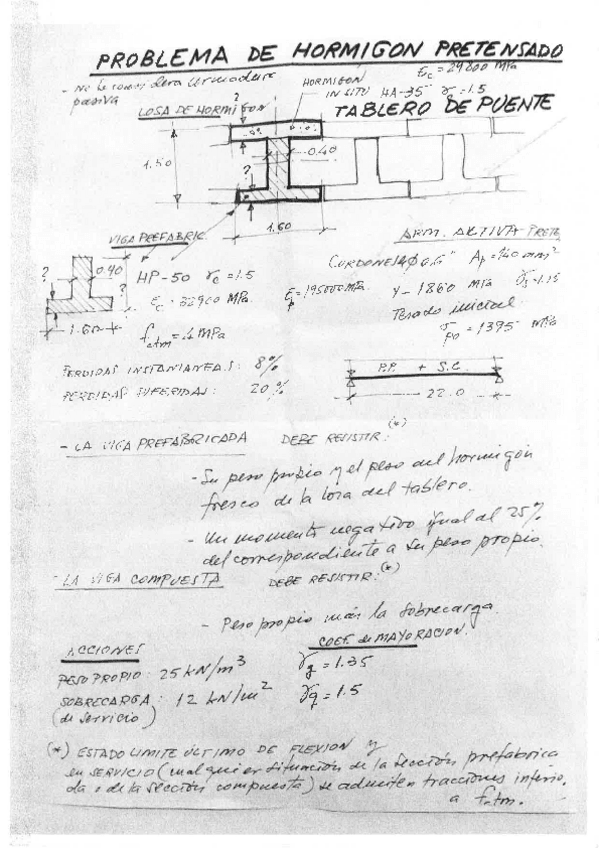 PROBLEMA DE HORMIGON PRETENSADO
- No se considera armadura
pasiva
HORMIGÓN
IN SITU HA-35 γ=1.5
Ec = 29800 MPa
LOSA DE HORMIGON
TABLERO DE PUENTE
?
1.50
0.40
?
1.60
VIGA PREFABRIC.
ARM. AKTIVA PRETE
?
0.90
?
1.60
HP-50 γc=1.5
Ec = 32900 MPa
fctm = 4 MPa
CORDONES φ0,6" Ap=140 mm²
Ep=195000MPa Y-1860 MPa γs=1.15
Tesado inicial
σp0 = 1395 MPa
PERDIDAS INSTANTANEAS: 8%
PERDIDAS DIFERIDAS: 20%
P.P. + S.C.
22.0
- LA VIGA PREFABRICADA DEBE RESISTIR: (*)
- Su peso propio y el peso del hormigón
fresco de la losa del tablero.
- Un momento negativo igual al 25%
del correspondiente a su peso propio.
- LA VIGA COMPUESTA DEBE RESISTIR: (*)
- Peso propio más la sobrecarga.
ACCIONES
COEF. de MAYORACION.
PESO PROPIO: 25 kN/m³ γg = 1.35
SOBRECARGA: 12 kN/m² γq = 1.5
(de servicio)
(*) ESTADO LIMITE ÚLTIMO DE FLEXION y
en SERVICIO (cualquier situación de la sección prefabrica
da o de la sección compuesta) se admiten tracciones inferio.
a fctm.